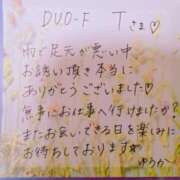 DUO-F Tさま♡
雨で足元が悪い中
お誘い頂き本当に
ありがとうございました♡
無事にお仕事へ行けましたか？
またお会いできる日を楽しみに
お待ちしております☆
ゆうか